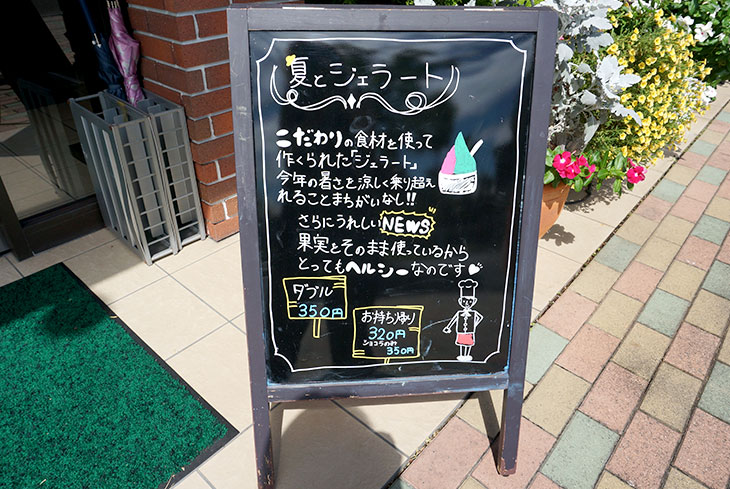 夏とジェラート
こだわりの食材を使って
作くられた「ジェラート」
今年の暑さを涼しく乗り超え
れることまちがいなし!!
さらにうれしいNEWS
果実をそのまま使っているから
とってもヘルシーなのです
ダブル
350円
お持ち帰り
320円
ショコラのみ
350円